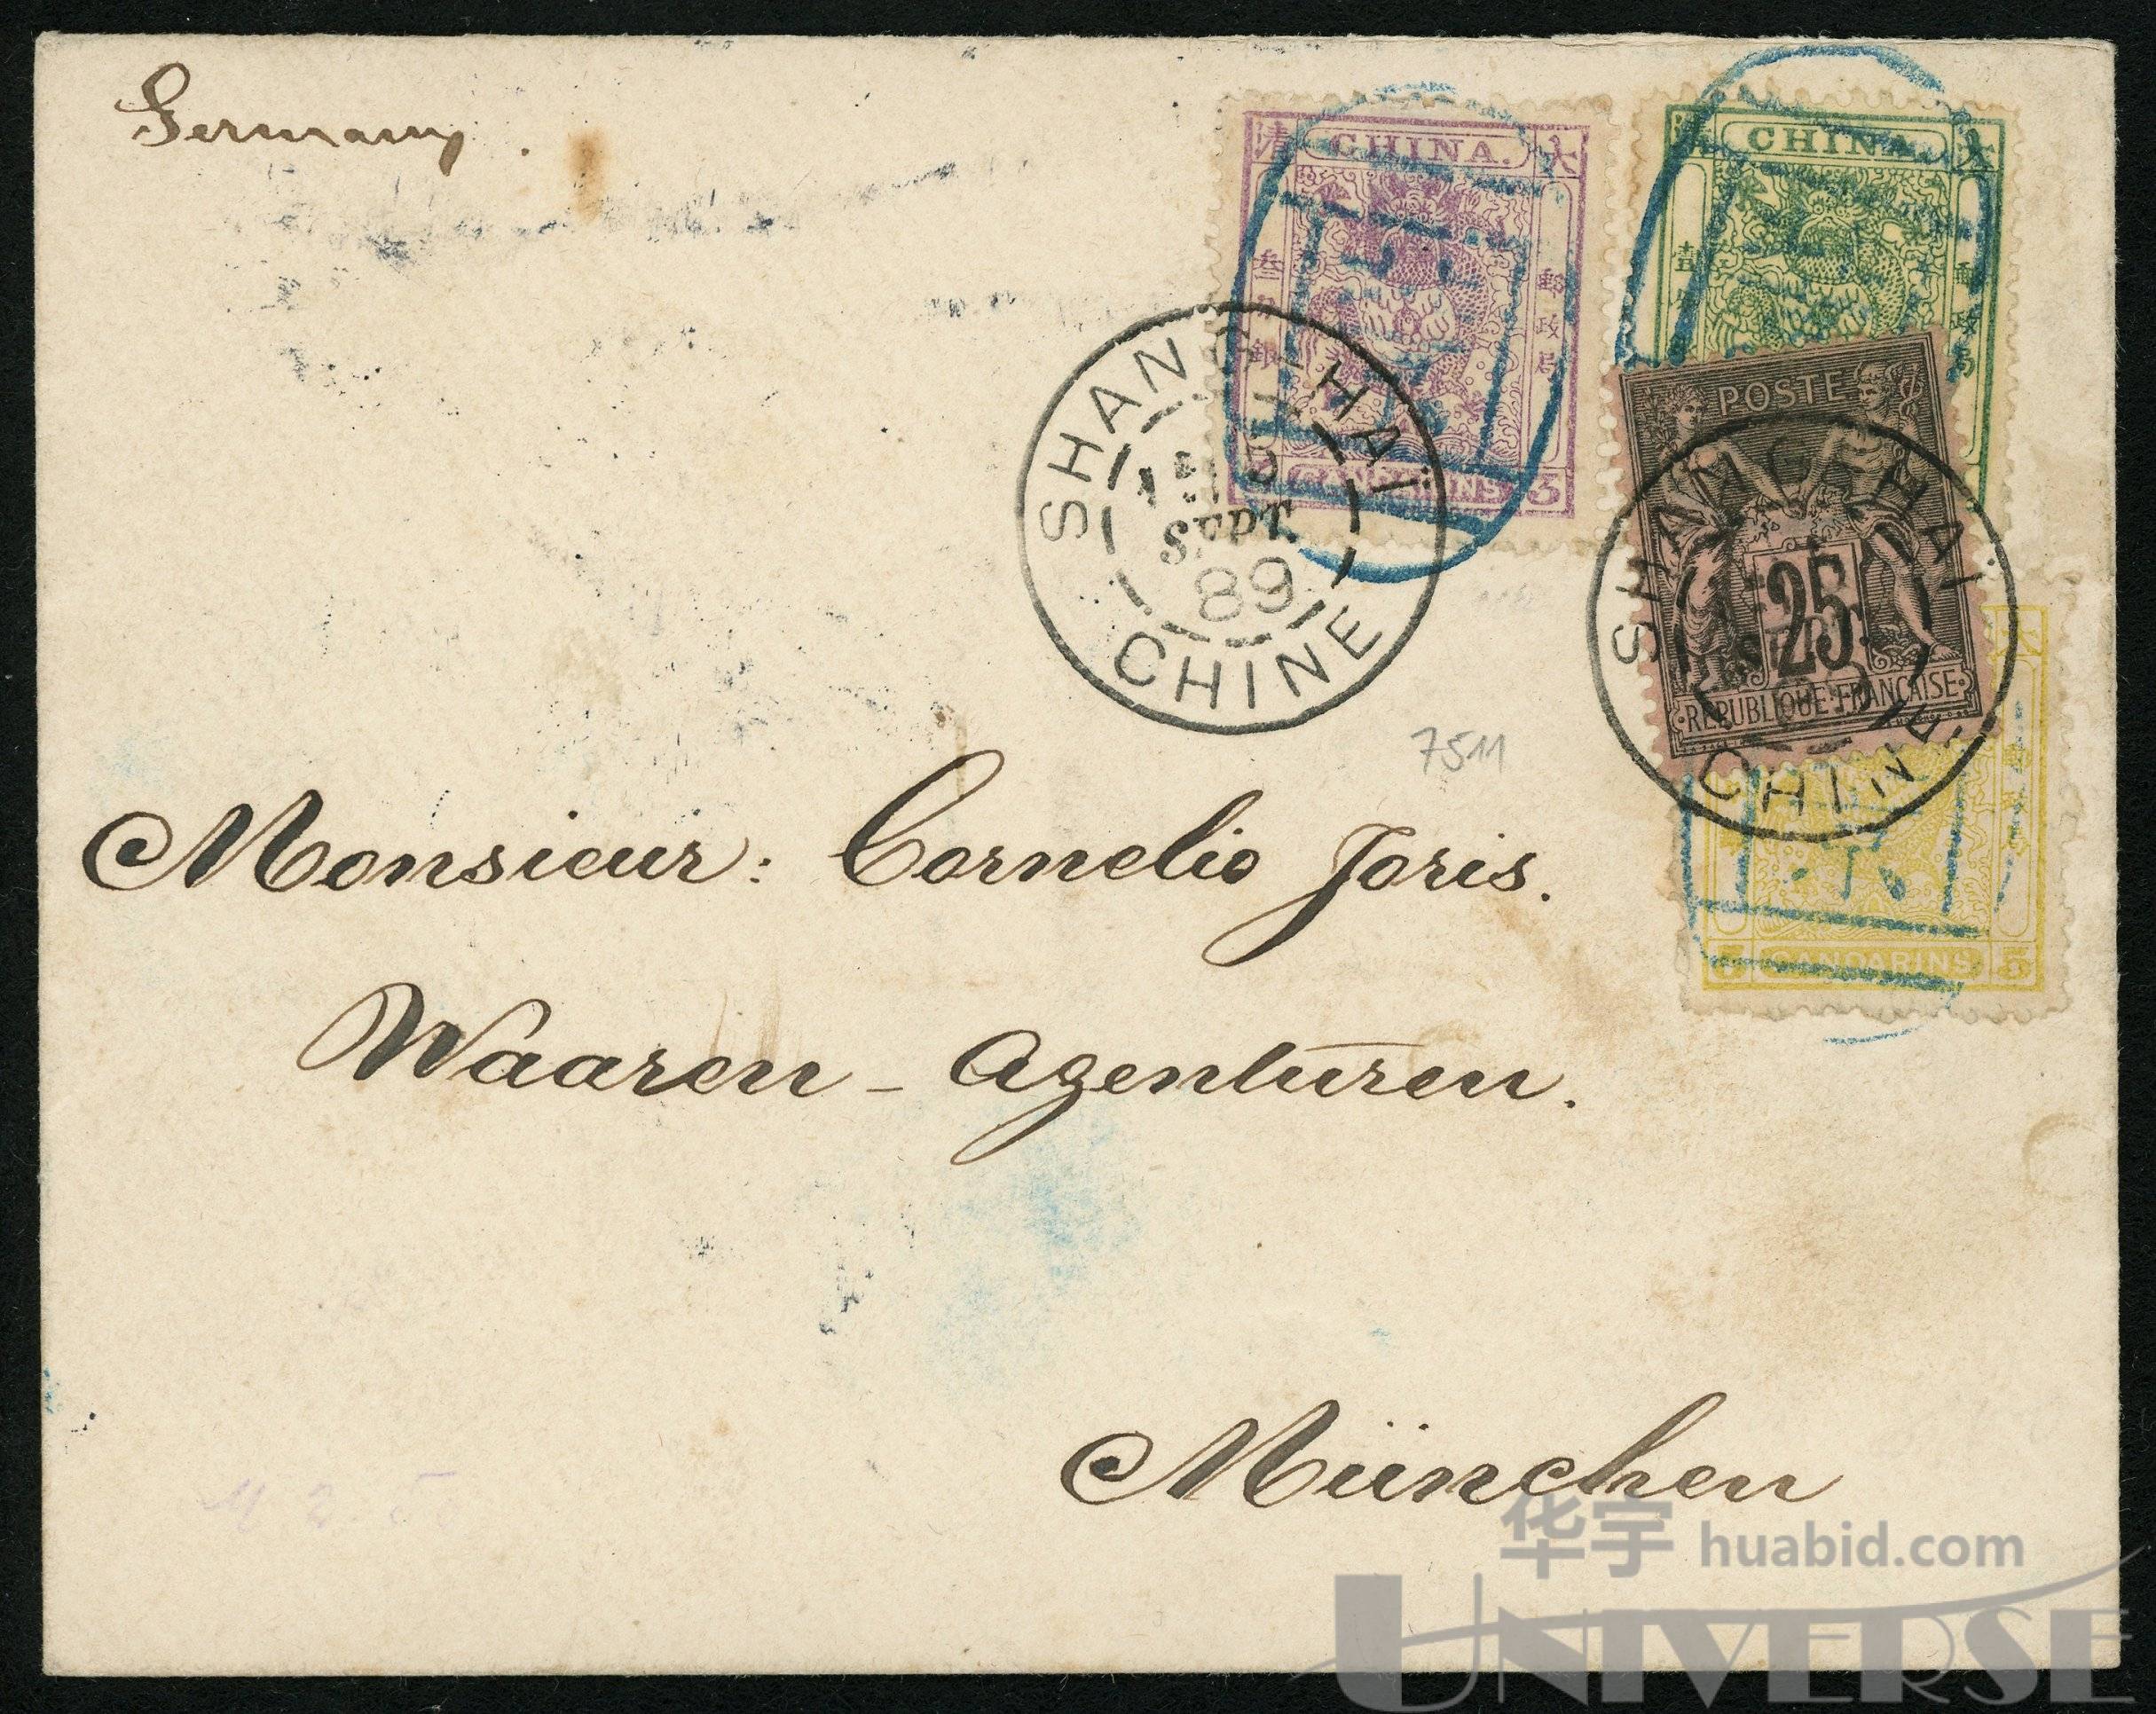 Germany.
清 CHINA. 大
叁 郵政局
銀
CANDARINS 3
CHINA. 大
壹 郵政局
SHANG-HAÏ
SEPT.
89
CHINE
POSTE
25
REPUBLIQUE FRANCAISE
SHANG-HAI
SEPT.
CHINE
5 CANDARINS 5
7511
Monsieur: Cornelio Joris.
Waaren - Agenturen.
München
华宇 huabid.com
UNIVERSE